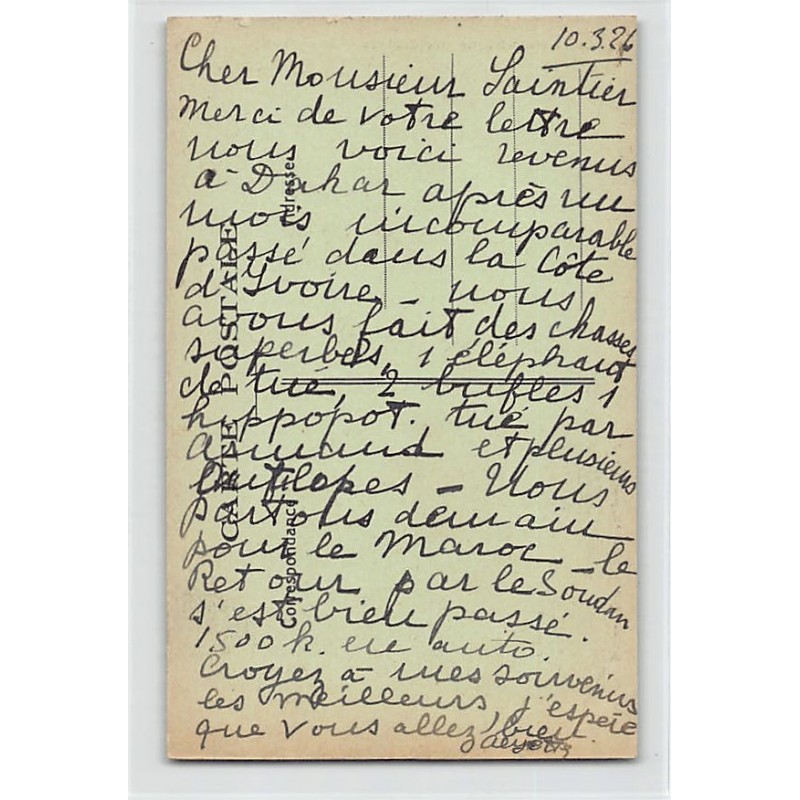 10.3.26
Cher Monsieur Saintier
Merci de votre lettre
nous voici revenus
à Dakar après un
mois incomparable
passé dans la Côte
d'Ivoire - nous
avons fait des chasses
superbes, 1 éléphant
de tué, 2 bufles 1
hippopot. tué par
Armand et plusieurs
antilopes - Nous
partons demain
pour le Maroc - le
Retour par le Soudan
s'est bien passé.
1500 k. en auto.
Croyez à mes souvenirs
les meilleurs, j'espère
que vous allez bien.
CARTE POSTALE
Correspondance
Adresses